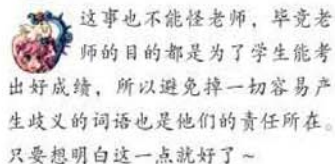 这事也不能怪老师，毕竟老
师的目的都是为了学生能考
出好成绩，所以避免掉一切容易产
生歧义的词语也是他们的责任所在。
只要想明白这一点就好了～